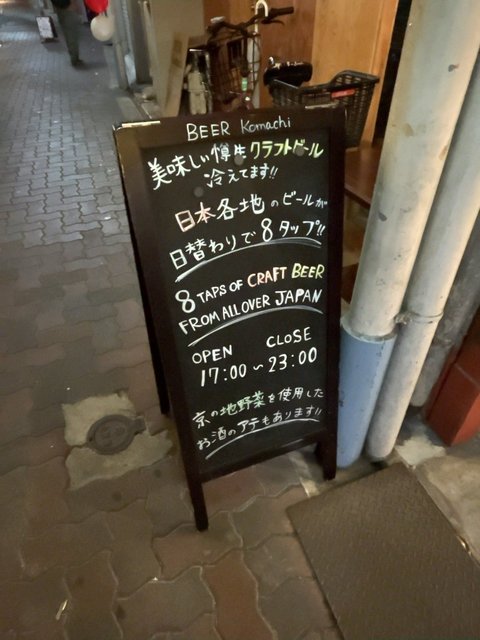 BEER Komachi
美味しい樽生クラフトビール
冷えてます!!
日本各地のビールが
日替わりで8タップ!!
8 TAPS OF CRAFT BEER
FROM ALL OVER JAPAN
OPEN CLOSE
17:00~23:00
京の地野菜を使用した
お酒のアテもあります!!